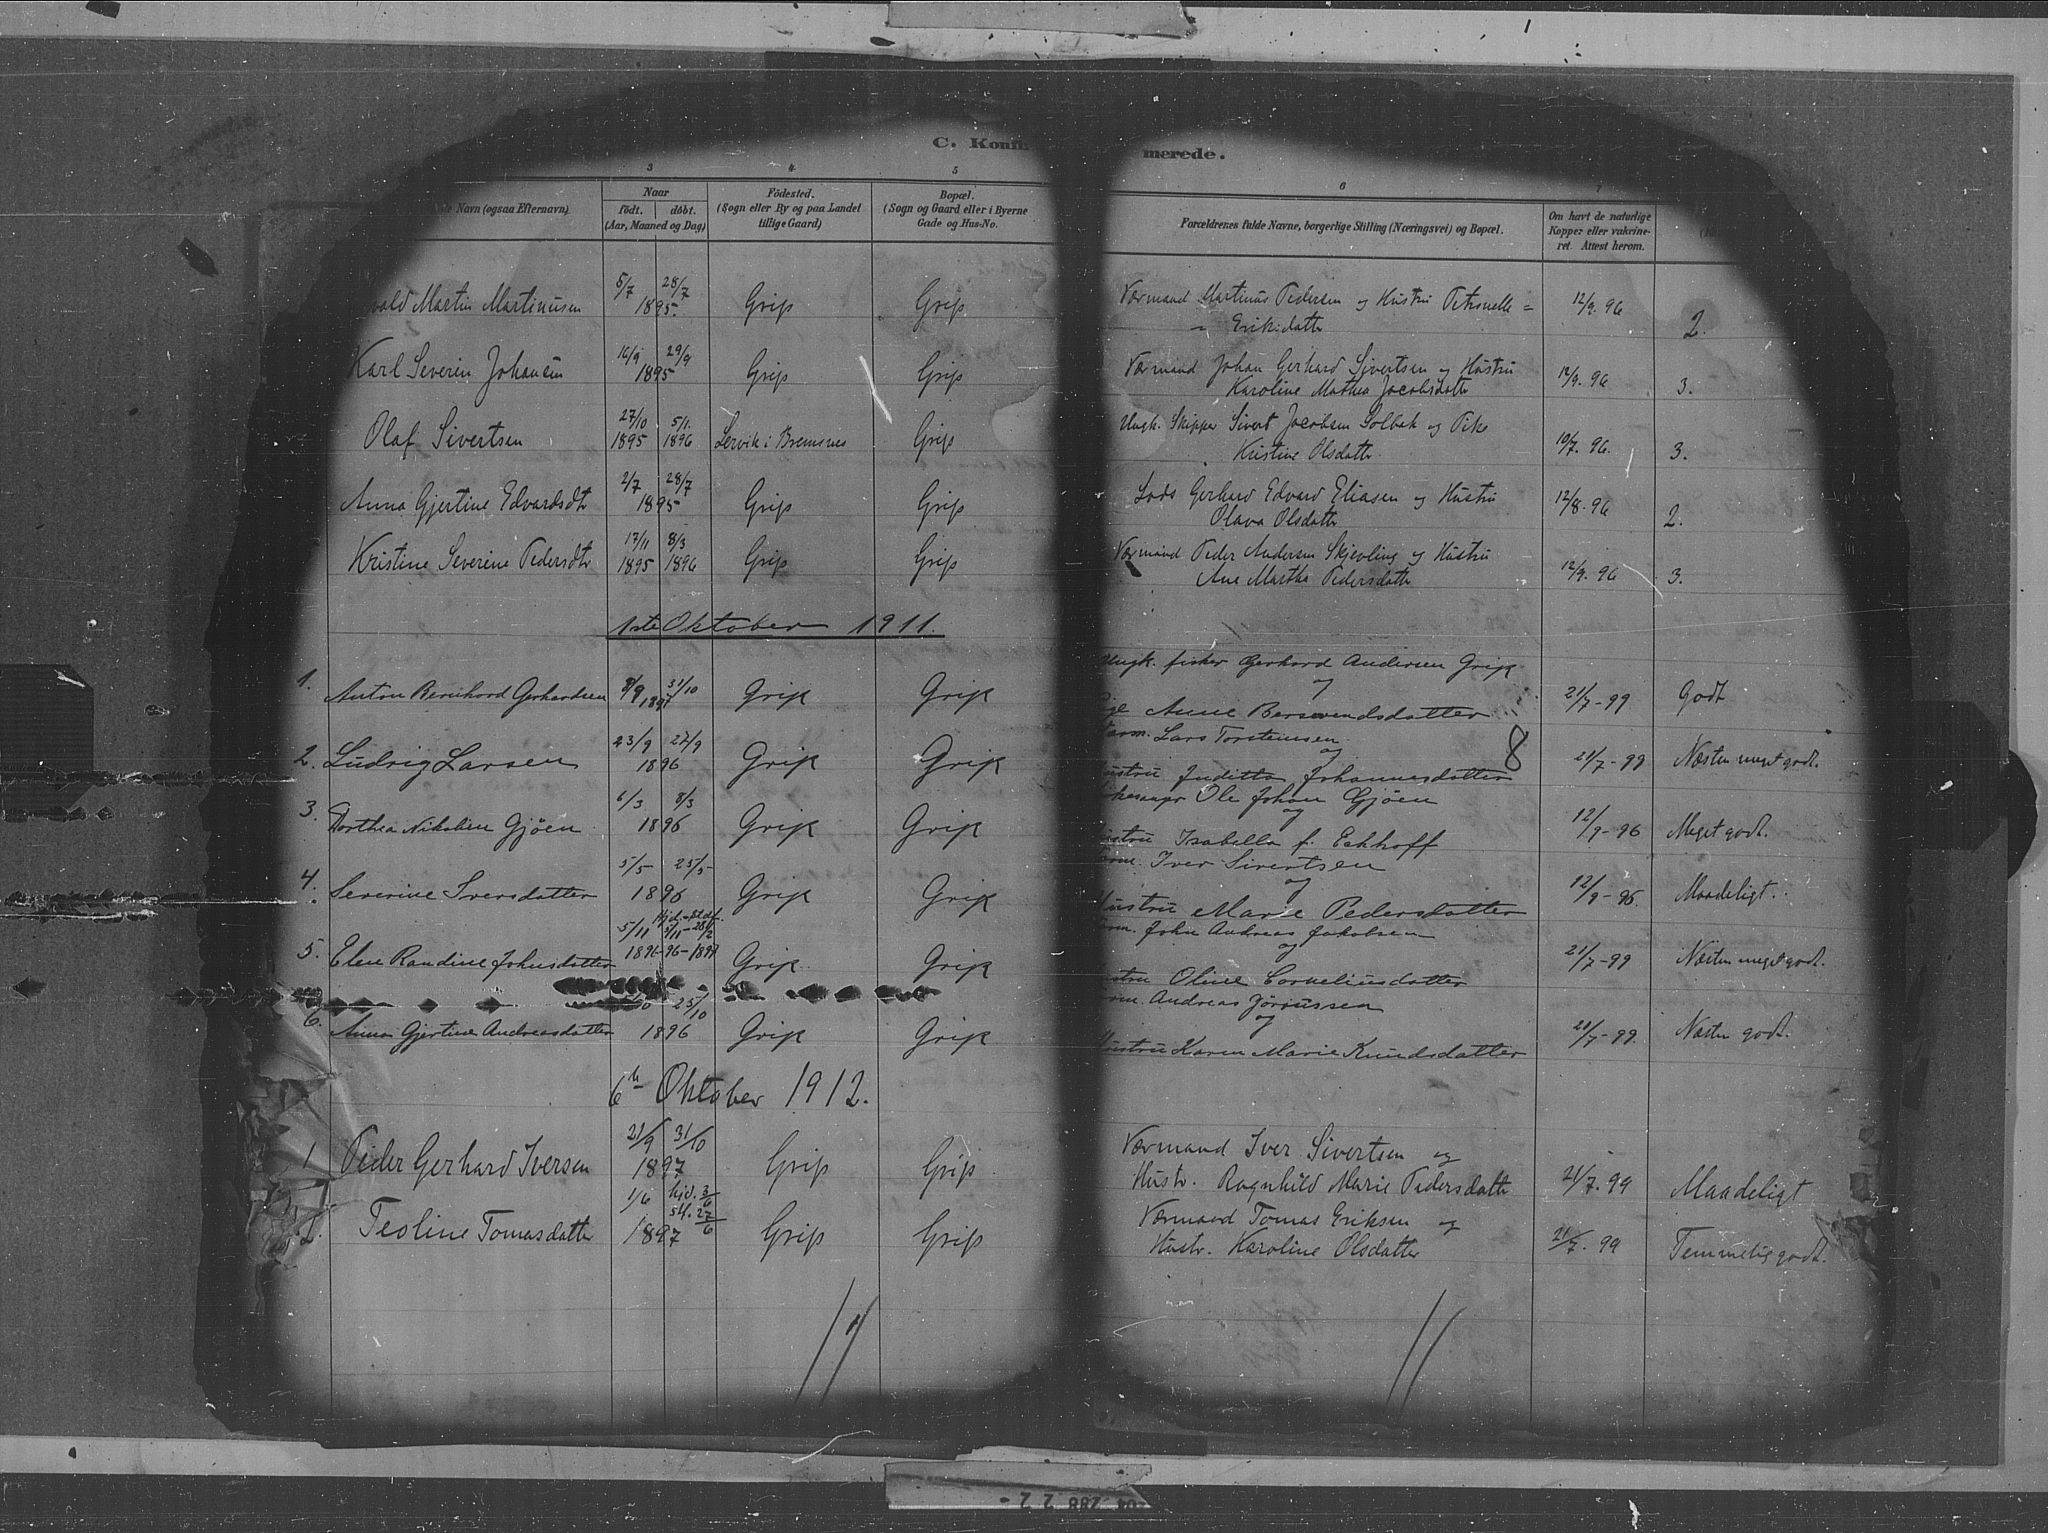 C. Konfi merede.
3 4 5 6 7
Navn (ogsaa Efternavn)
Naar
født. døbt.
(Aar, Maaned og Dag)
Fødested.
(Sogn eller By og paa Landet
tillige Gaard)
Bopæl.
(Sogn og Gaard eller i Byerne
Gade og Hus-No.
Forældrenes fulde Navne, borgerlige Stilling (Næringsvei) og Bopæl.
Om havt de naturlige
Kopper eller vakcine-
ret. Attest herom.
5/7 28/7
vald Martin Martinusen 1895. Grip Grip Værmand Martinus Pedersen og Hustru Petronelle = 12/9. 96
= Eriksdatter 2.
16/9 29/9
Karl Severin Johansen 1895 Grip Grip Værmand Johan Gerhard Sivertsen og Hustru 12/9. 96
Karoline Mathea Jacobsdatter 3.
27/10 5/1.
Olaf Sivertsen 1895 1896 Lervik i Bremsnes Grip Ungk. Skipper Sivert Jacobsen Solbak og Pike 10/7. 96.
Kristine Olsdatter 3.
2/7 28/7
Anna Gjertine Edvardsdtr 1895 Grip Grip Lods Gerhard Edvard Eliasen og Hustru 12/8. 96
Olava Olsdatter 2.
17/11 8/3
Kristine Severine Pedersdtr 1895 1896 Grip Grip Værmand Peder Andersen Skjevling og Hustru 12/9. 96
Ane Martha Pedersdatter 3.
1ste Oktober 1911.
Ungk. fisker Gerhard Andersen Grip
og
1. Anton Bernhard Gerhardsen 8/9 31/10 1897 Grip Grip 21/7-99 Godt
Anne Berarendsdatter
Lars Torsteinsen
og
8
2. Ludvig Larsen 23/9 27/9 1896 Grip Grip 21/7-99 Næsten meget godt.
Juditta Johannesdatter
Ole Johan Gjöen
og
3. Dorthea Nikoline Gjöen 6/3 8/3 1896 Grip Grip 12/9-96 Meget godt.
Isabella f. Eckhoff
Iver Sivertsen
og
4. Severine Iversdatter 5/5 25/5 1896 Grip Grip 12/9-96. Maadeligt.
Hustru Marie Pedersdatter
John Andreas Jakobsen
og
5. Elen Randine Johnsdatter 5/11 1896-96-1897 Grip Grip 21/7-99 Næsten meget godt.
Oline Corneliusdatter
Andreas Jörgussen
og
6. Anna Gjertine Andreasdatter 25/10 1896 Grip Grip 21/7-99. Næsten godt.
Hustru Karen Marie Knudsdatter
6te Oktober 1912.
21/9 31/10 Værmand Iver Sivertsen og
1 Peder Gerhard Iversen 1897 Grip Grip Hustr. Ragnhild Marie Pedersdatter 21/7. 99 Maadeligt
1/6 hjd. 3/6 st. 27/6 Værmand Tomas Eriksen og
2. Teoline Tomasdatter 1897 Grip Grip Hustr. Karoline Olsdatter 21/7. 99 Temmelig godt.